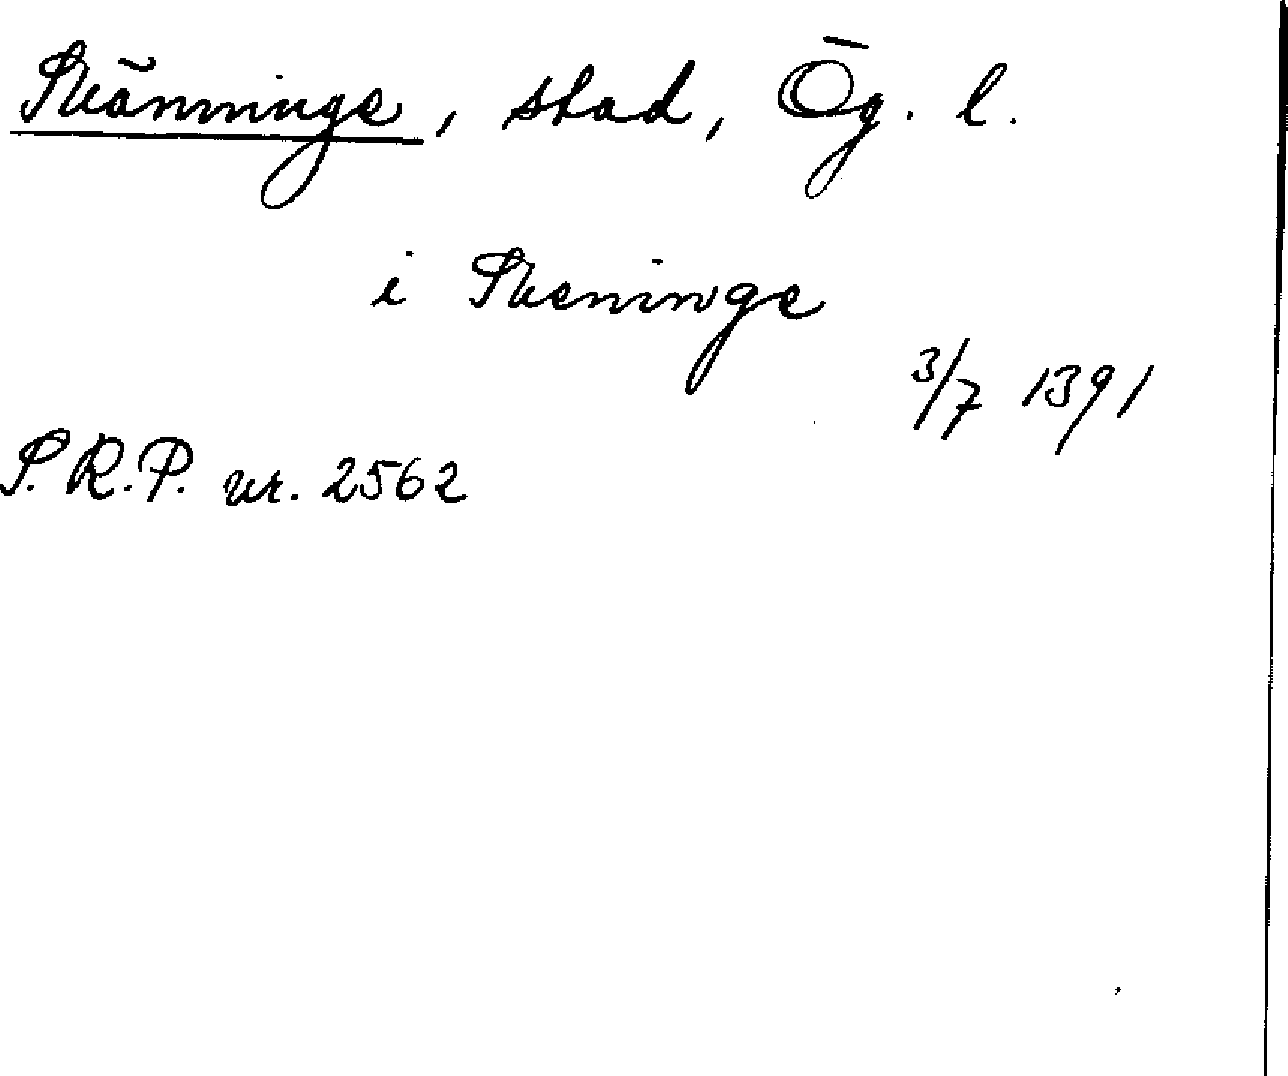 Skänninge, stad, Ög. l.
i Skeninge
3/7 1391
S.R.P. nr. 2562